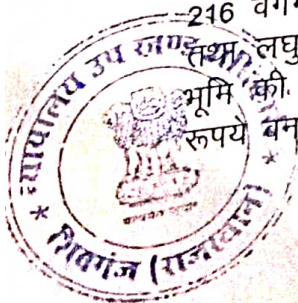 216 वर्ग
तथा लघु
भूमि की
रूपये
न्यायालय उप खण्ड
* शिवगंज (राजस्थान) *